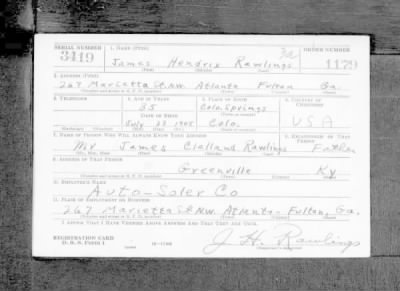 SERIAL NUMBER 1. NAME (Print) ORDER NUMBER
3419 James Hendrix Rawlings 1179
(First) (Middle) (Last)
2. ADDRESS (Print)
267 Marietta St. N.W. Atlanta Fulton Ga.
3. TELEPHONE 4. AGE IN YEARS 5. PLACE OF BIRTH 6. COUNTRY OF CITIZENSHIP
35 Colo. Springs
DATE OF BIRTH
July 23 1905 Colo. USA
7. NAME OF PERSON WHO WILL ALWAYS KNOW YOUR ADDRESS 8. RELATIONSHIP OF THAT PERSON
Mr James Clalland Rawlings Father
9. ADDRESS OF THAT PERSON
Greenville Ky
10. EMPLOYER'S NAME
Auto-Soler Co
11. PLACE OF EMPLOYMENT OR BUSINESS
267 Marietta St. N.W. Atlanta-Fulton, Ga.
I AFFIRM THAT I HAVE VERIFIED ABOVE ANSWERS AND THAT THEY ARE TRUE.
REGISTRATION CARD
D. S. S. Form 1
J. H. Rawlings